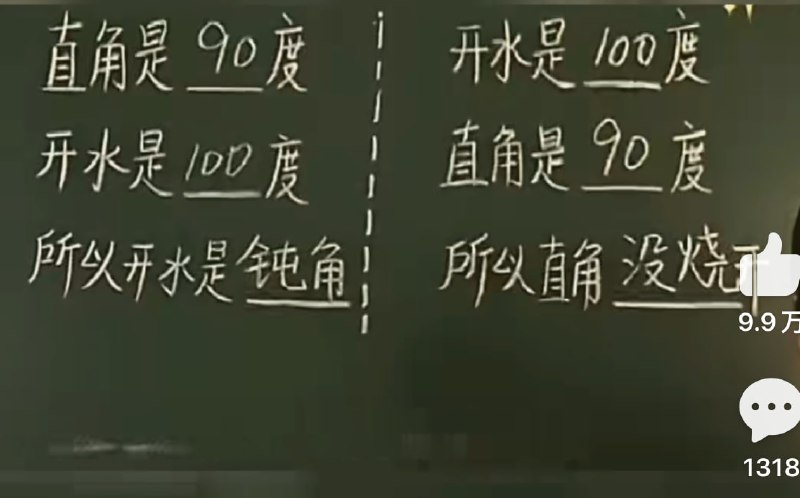 直角是 90 度
开水是 100 度
所以开水是 钝角
开水是 100 度
直角是 90 度
所以直角 没烧开
9.9万
1318